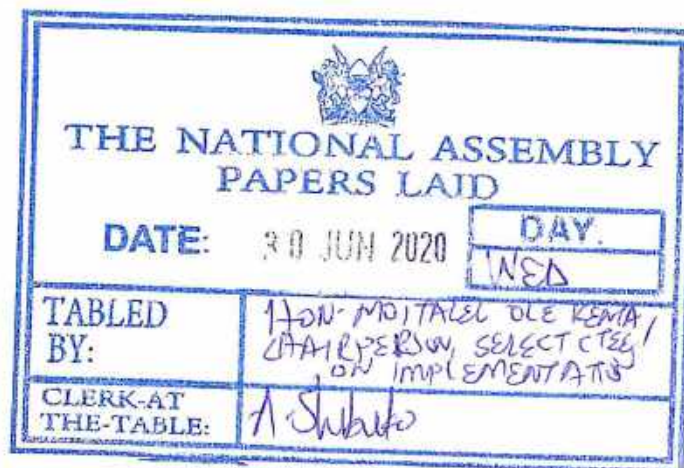 THE NATIONAL ASSEMBLY
PAPERS LAID
DATE: 30 JUN 2020
DAY.
WED
TABLED BY:
HON. MOITALEL OLE KENTA,
CHAIRPERSON, SELECT CTEE
ON IMPLEMENTATION
CLERK-AT
THE-TABLE: